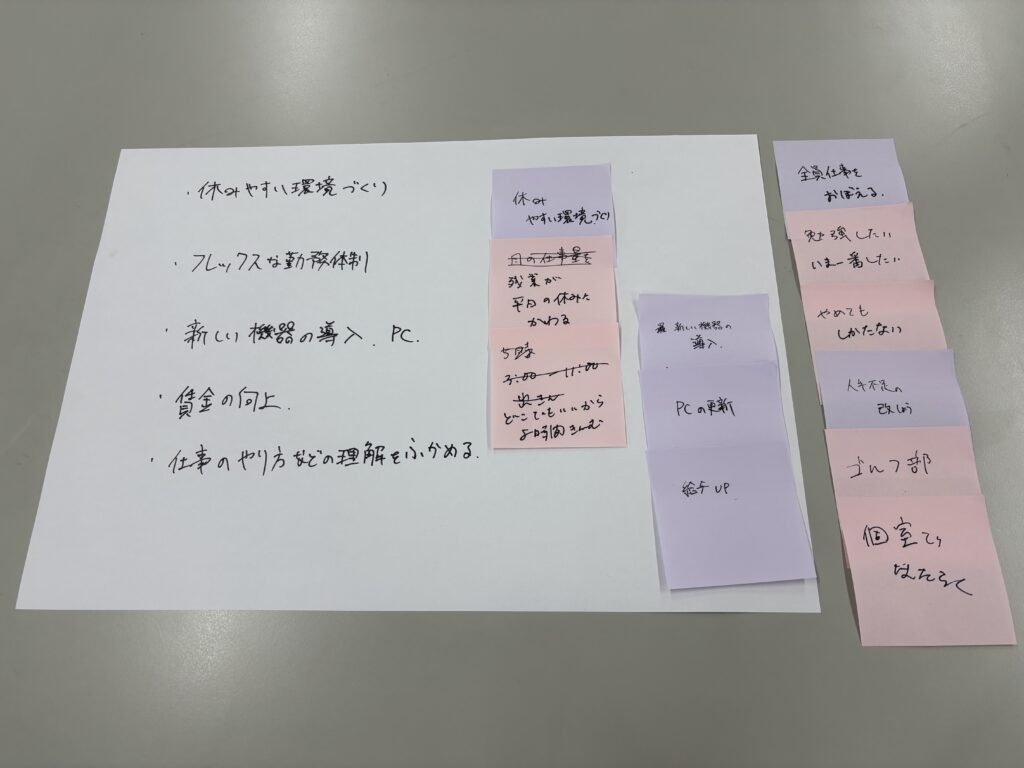 ・休みやすい環境づくり
・フレックスな勤務体制
・新しい機器の導入、PC.
・賃金の向上.
・仕事のやり方などの理解をふかめる.
休み
やすい環境づくり
月の仕事量を
残業が
平日の休みに
かわる
5時
3:00 ー 11:00
どこでもいいから
8時間きんむ
新しい機器の
導入.
PCの更新
給与 UP
全員仕事を
おぼえる.
勉強したい
いま一番したい
やめても
しかたない
人手不足の
改しょう
ゴルフ部
個室で